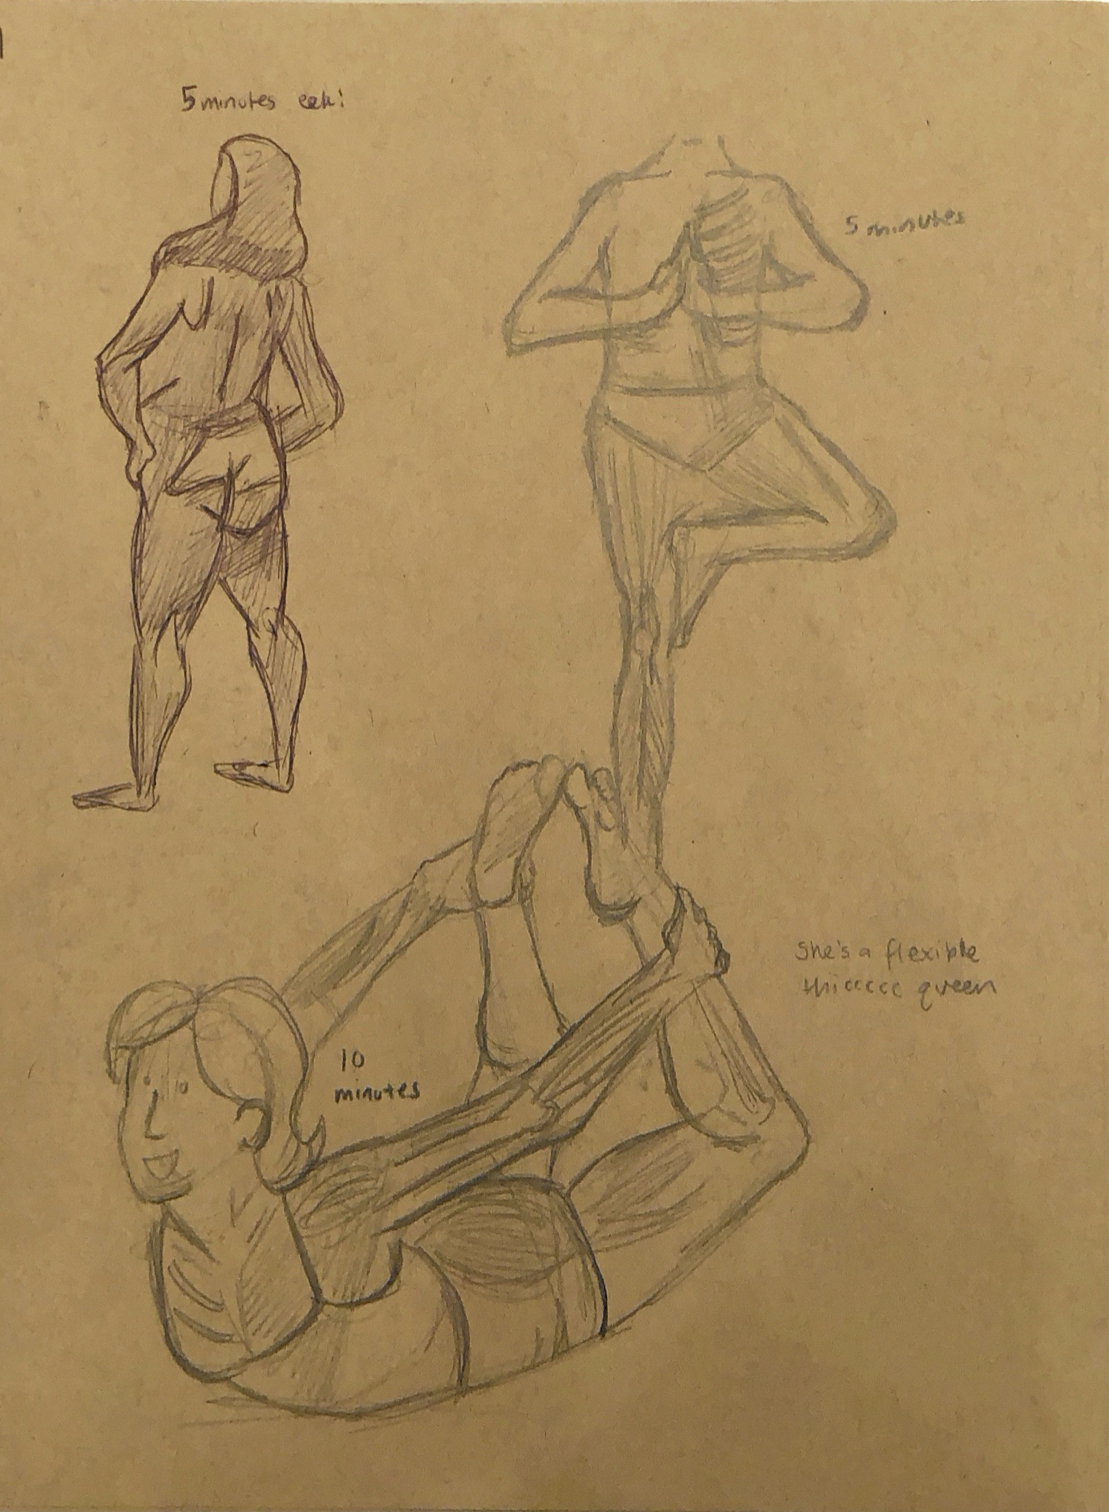 5 minutes eek!
5 minutes
She's a flexible
thicccc queen
10
minutes